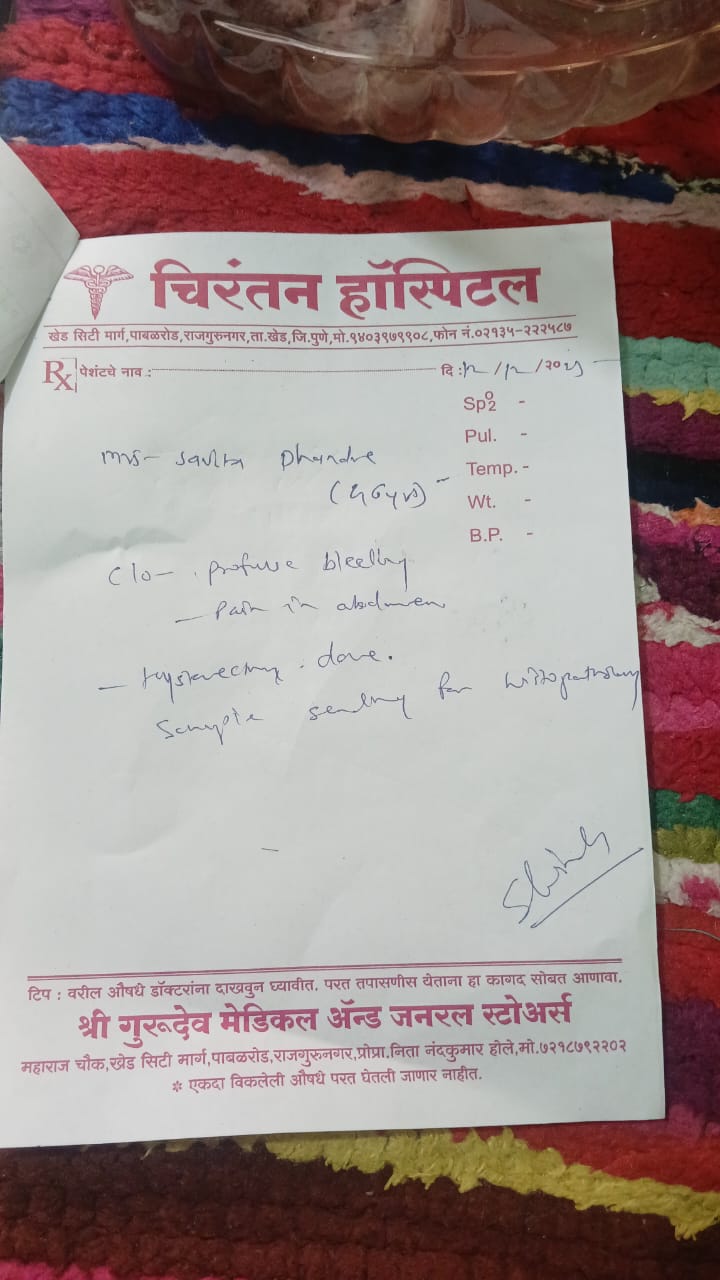 चिरंतन हॉस्पिटल
खेड सिटी मार्ग,पाबळरोड,राजगुरुनगर,ता.खेड,जि.पुणे,मो.९४०३९७९९०८,फोन नं.०२१३५-२२२५८७
Rx पेशंटचे नाव : दि :१२/१२/२०२५
Sp02 -
Pul. -
Temp. -
Wt. -
B.P. -
mrs- Savita
C/o - profuse bleeding
- Pain in abdomen
- Hysterectomy done.
Sample sending for histopathology
टिप : वरील औषधे डॉक्टरांना दाखवुन घ्यावीत. परत तपासणीस येताना हा कागद सोबत आणावा.
श्री गुरूदेव मेडिकल ॲन्ड जनरल स्टोअर्स
महाराज चौक,खेड सिटी मार्ग,पाबळरोड,राजगुरुनगर,प्रोप्रा.निता नंदकुमार होले,मो.७२१८७९२२०२
* एकदा विकलेली औषधे परत घेतली जाणार नाहीत.